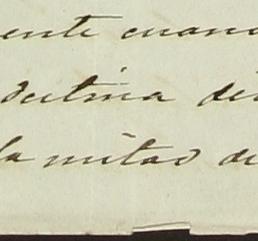 ente cuand
destina de
la mitad de